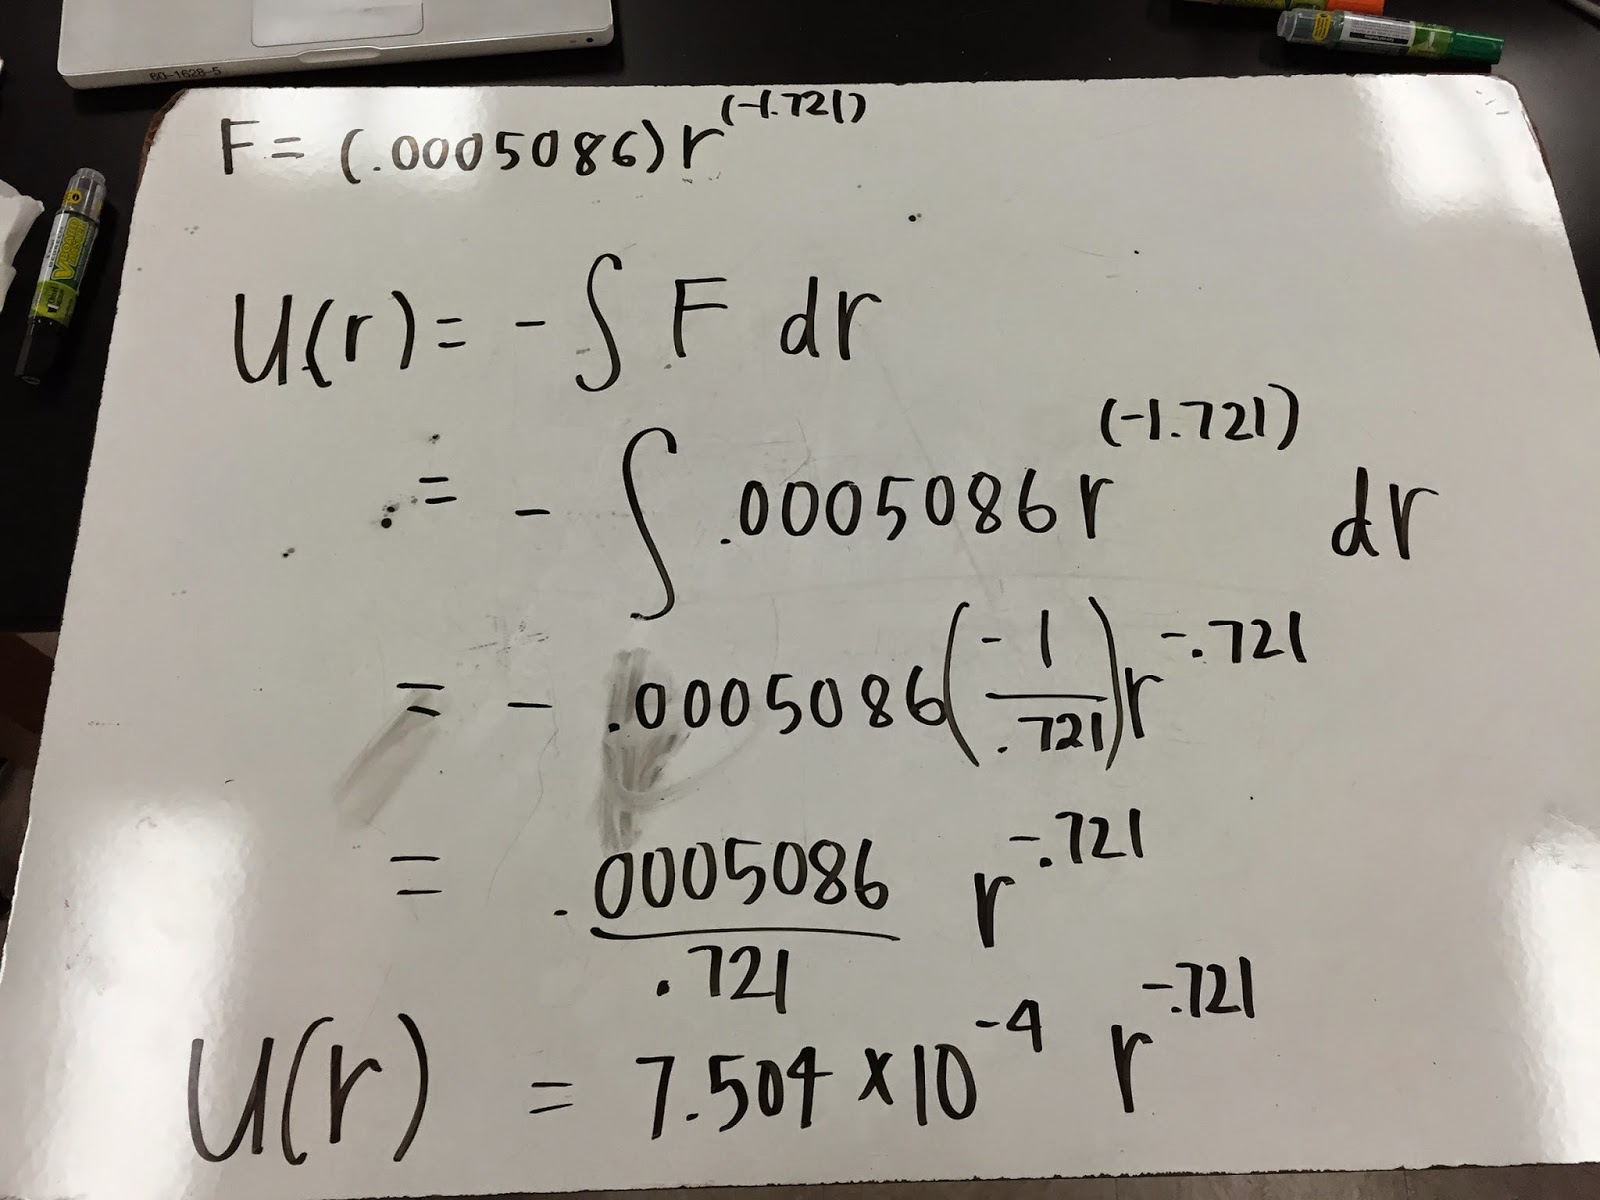 60-1628-5
F = (.0005086) r^(-1.721)
U(r) = - ∫ F dr
= - ∫ .0005086 r^(-1.721) dr
= - .0005086 (-1/.721) r^-.721
= .0005086/.721 r^-.721
U(r) = 7.504 × 10^-4 r^-.721